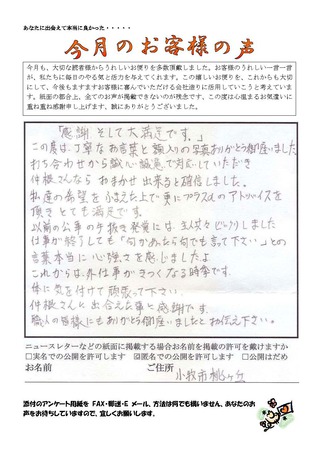 あなたに出会えて本当に良かった・・・・・
今月のお客様の声
今月も、大切な読者様からうれしいお便りを多数頂戴しました。お客様のうれしい一言一言
が、私たちに毎日のやる気と活力を与えてくれます。この嬉しいお便りを、これからも大切
にして、今後もますますお客様に喜んでいただける会社造りに活用していこうと考えていま
す。紙面の都合上、全てのお声が掲載できないのが残念です、この度は心温まるお気遣いに
重ね重ね感謝申し上げます。誠にありがとうございました。
「感謝そして大満足です。」
この度は、丁寧なお言葉と
ありがとう御座いました
打ち合わせから誠心誠意で対応していただき
さんなら おまかせ出来ると確信しました。
私達の希望をふまえた上で更にプラスαのアドバイスを
頂きとても満足です。
以前の公事の手抜き発覚には、主人共々びっくりしました
仕事が終了しても「何かあったら何時でも言って下さい」との
言葉本当に心強さを感じましたよ
これからは、外仕事がきつくなる時季です。
体に気を付けて頑張って下さい
さんと出会えた事と感謝です。
職人の皆様にもありがとう御座いましたとお伝え下さい。
ニュースレターなどの紙面に掲載する場合お名前を掲載の許可を戴けますか
□実名での公開を許可します ☑匿名での公開を許可します □公開はだめ
お名前 ご住所
小牧市桃ヶ丘
添付のアンケート用紙を FAX・郵送・E メール、方法は何でも構いません、あなたのお
声をお待ちしていますので、宜しくお願いします。